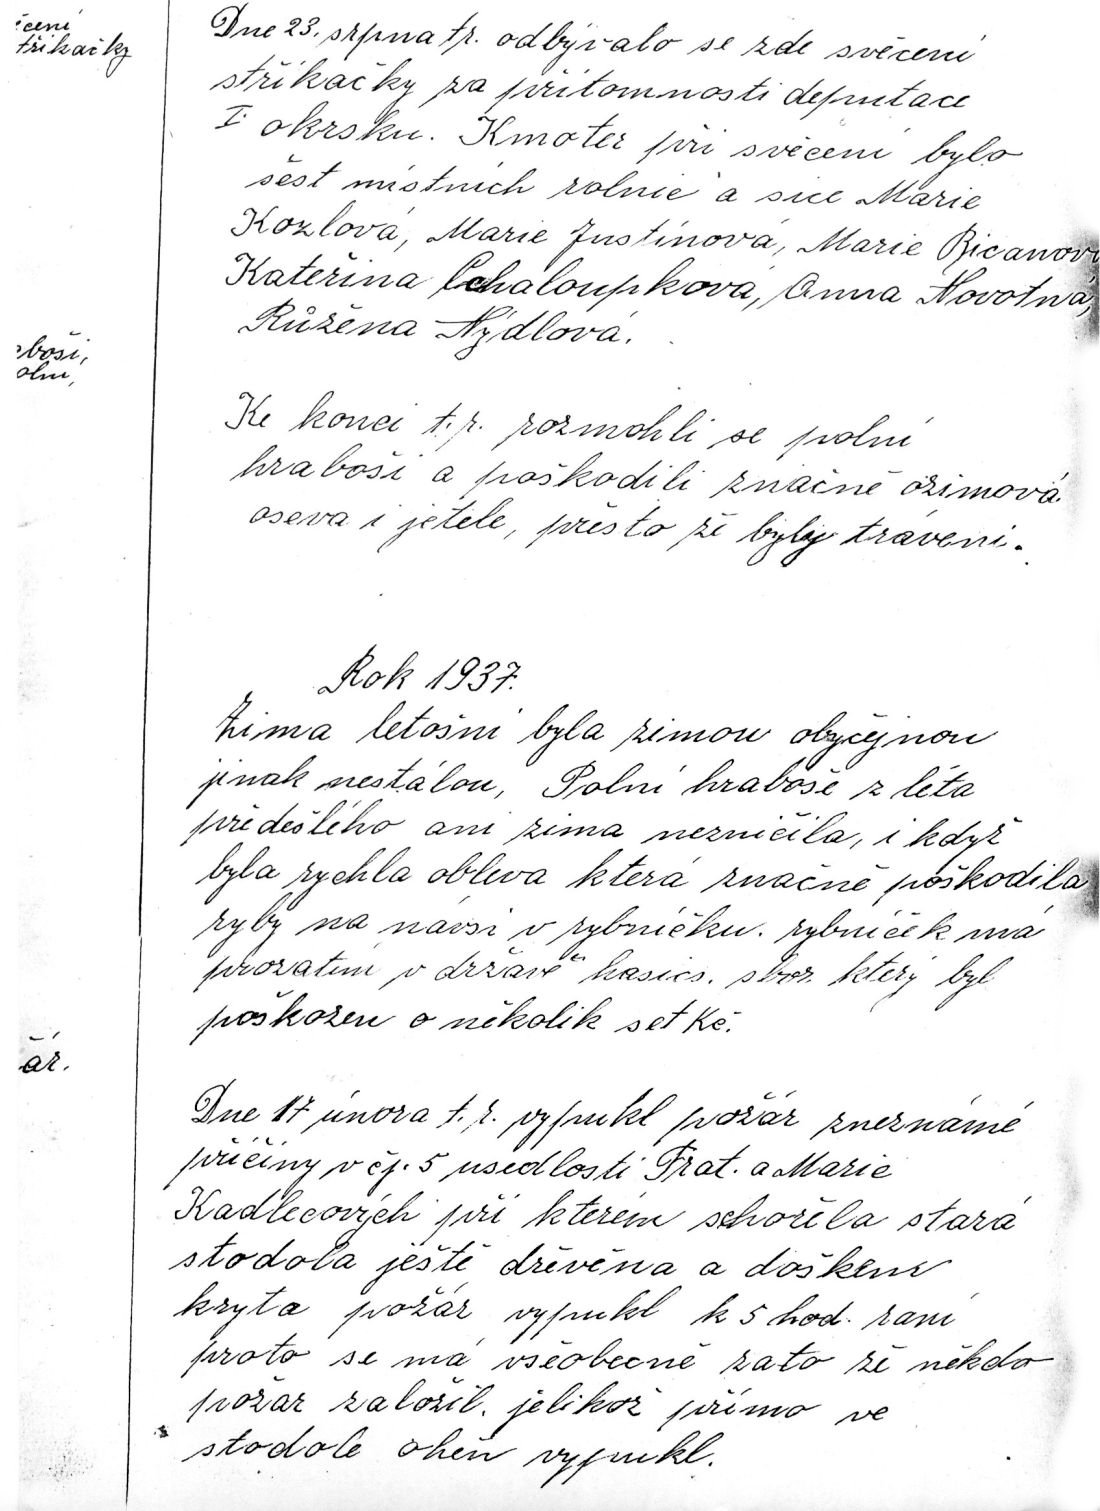 čení
třikačky
Dne 23. srpna t.r. odbývalo se zde svěcení
stříkačky za přítomnosti deputace
I. okrsku. Kmoter při svěcení bylo
šest místních rolnic a sice Marie
Kozlová, Marie Justinová, Marie Bicanov
Kateřina Chaloupková, Anna Novotná,
Růžena Nýdlová.
boši,
olní,
Ke konci t.r. rozmohli se polní
hraboši a poškodili značně ozimová
oseva i jetele, přesto že byly tráveni.
Rok 1937.
Zima letošní byla zimou obyčejnou
jinak nestálou, Polní hraboše z léta
předešlého ani zima nezničila, i když
byla rychla obleva která značně poškodila
ryby na návsi v rybníčku. rybníček má
prozatím v državě hasičs. sbor. který byl
poškozen o několik set Kč.
ár.
Dne 17 února t.r. vypukl požár zneznámé
příčiny v čp. 5 usedlosti Frat. a Marie
Kadlecových při kterém schořela stará
stodola ještě dřevěna a doškem
kryta požár vypukl k 5 hod. raní
proto se má všeobecně zato že někdo
požar založil. jelikož přímo ve
stodole oheň vypukl.